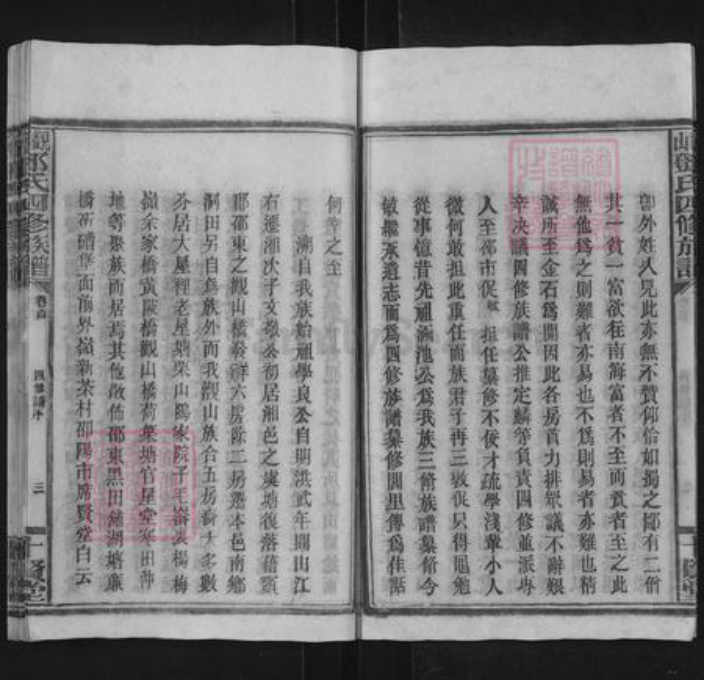 卽外姓人見此亦無不贊仰恰如蜀之鄙有二僧
其一貧一富欲往南海富者不至而貧者至之此
無他爲之則難者亦易也不爲則易者亦難也精
誠所至金石爲開因此各房首力排衆議不辭艱
辛決議四修族譜公推定麟等負責四修並派專
人至邵市促敏担任纂修不佞才疏學淺輩小人
微何敢担此重任而族君子再三敦促只得黽勉
從事憶昔先祖洲池公爲我族三修族譜纂脩今
敏繼承遺志而爲四修族譜纂修閭里傳爲佳話
何幸之至
溯自我族始祖學良公自明洪武年間由江
右遷湘次子文嶽公初居湘邑之虞塘復落藉寶
郡邵東之觀山橋發祥六房除二房遷本邑南鄉
洞田另自爲族外而我觀山族合五房裔大多數
分居大屋裡老屋塘柴山陽家院子毛
嶺朱家橋黃陂橋觀山橋荷葉塘官屋堂寒田
地等聚族而居焉其他散佈邵東黑田舖湖塘廉
橋砲面前界嶺新茶村邵陽市席賢堂白雲
觀山鄧氏四修族譜
卷首
四修譜序
三